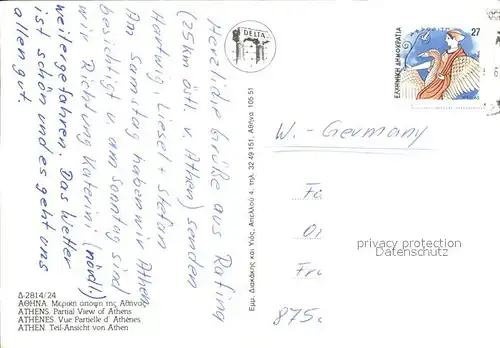 Herzliche Grüße aus Rafina
(25km östl. v. Athen) senden
Hartwig, Liesel + Stefan
Am Samstag haben wir Athen
besichtigt u. am Sonntag sind
wir Richtung Katerini (nördl.)
weitergefahren. Das Wetter
ist schön und es geht uns
allen gut.
Δ-2814/24
ΑΘΗΝΑ. Μερική άποψη της Αθήνας
ATHENS. Partial View of Athens
ATHÈNES. Vue Partielle d' Athènes
ATHEN. Teil-Ansicht von Athen
DELTA
Εμμ. Διακάκης και Υιός, Απελλού 4, τηλ. 32 49 151, Αθήνα 105 51
ΕΛΛΗΝΙΚΗ ΔΗΜΟΚΡΑΤΙΑ
27
W.-Germany
privacy protection
VERITAS
875